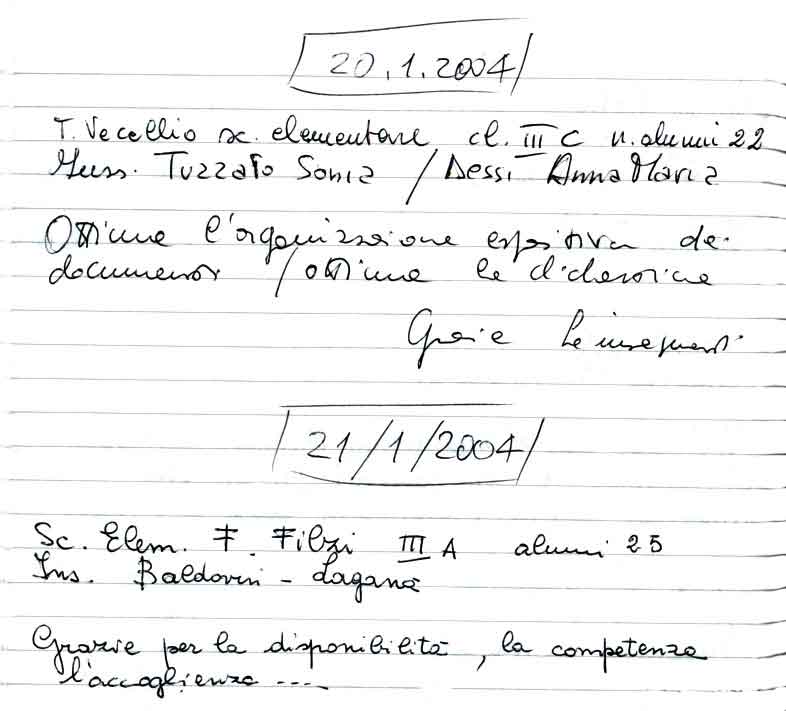 20.1.2004
T. Vecellio sc. elementare cl. III C n. alunni 22
Inss. Tuzzato Sonia / Dessì Anna Maria
Ottima l'organizzazione espositiva dei
documenti / ottima la didascalia
Grazie Le insegnanti
21/1/2004
Sc. Elem. F. Filzi III A alunni 25
Ins. Baldovin - Laganà
Grazie per la disponibilità, la competenza
l'accoglienza ....